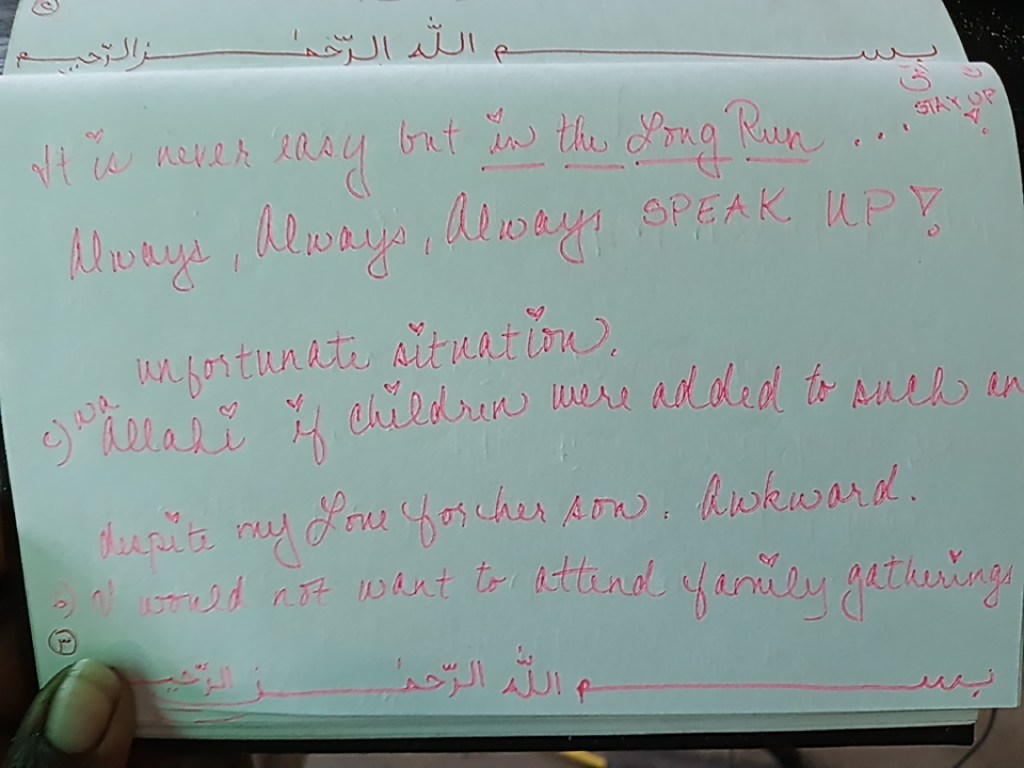 بســــم اللّٰه الرّحمٰــن الرّحيم
STAY UP!
It is never easy but in the Long Run ...
Always, Always, Always SPEAK UP!
unfortunate situation.
c) wa allahi if children were added to such an
despite my Love for her son. Awkward.
b) I would not want to attend family gatherings
٣
بســــم اللّٰه الرّحمٰــن الرّحيم